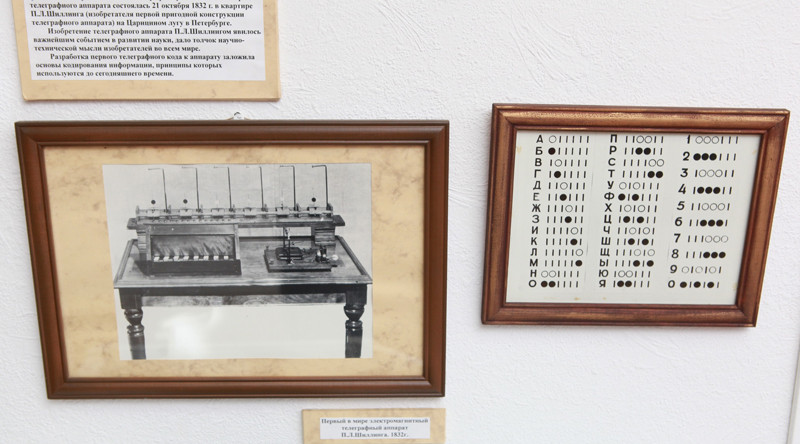 телеграфного аппарата состоялась 21 октября 1832 г. в квартире
П.Л.Шиллинга (изобретателя первой пригодной конструкции
телеграфного аппарата) на Царицином лугу в Петербурге.
Изобретение телеграфного аппарата П.Л.Шиллингом явилось
важнейшим событием в развитии науки, дало толчок научно-
технической мысли изобретателей во всем мире.
Разработка первого телеграфного кода к аппарату заложила
основы кодирования информации, принципы которых
используются до сегодняшнего времени.
А
Б
В
Г
Д
Е
Ж
З
И
К
Л
М
Н
О
П
Р
С
Т
У
Ф
Х
Ц
Ч
Ш
Щ
Ы
Ю
Я
1
2
3
4
5
6
7
8
9
0
Первый в мире электромагнитный
телеграфный аппарат
П.Л.Шиллинга. 1832г.